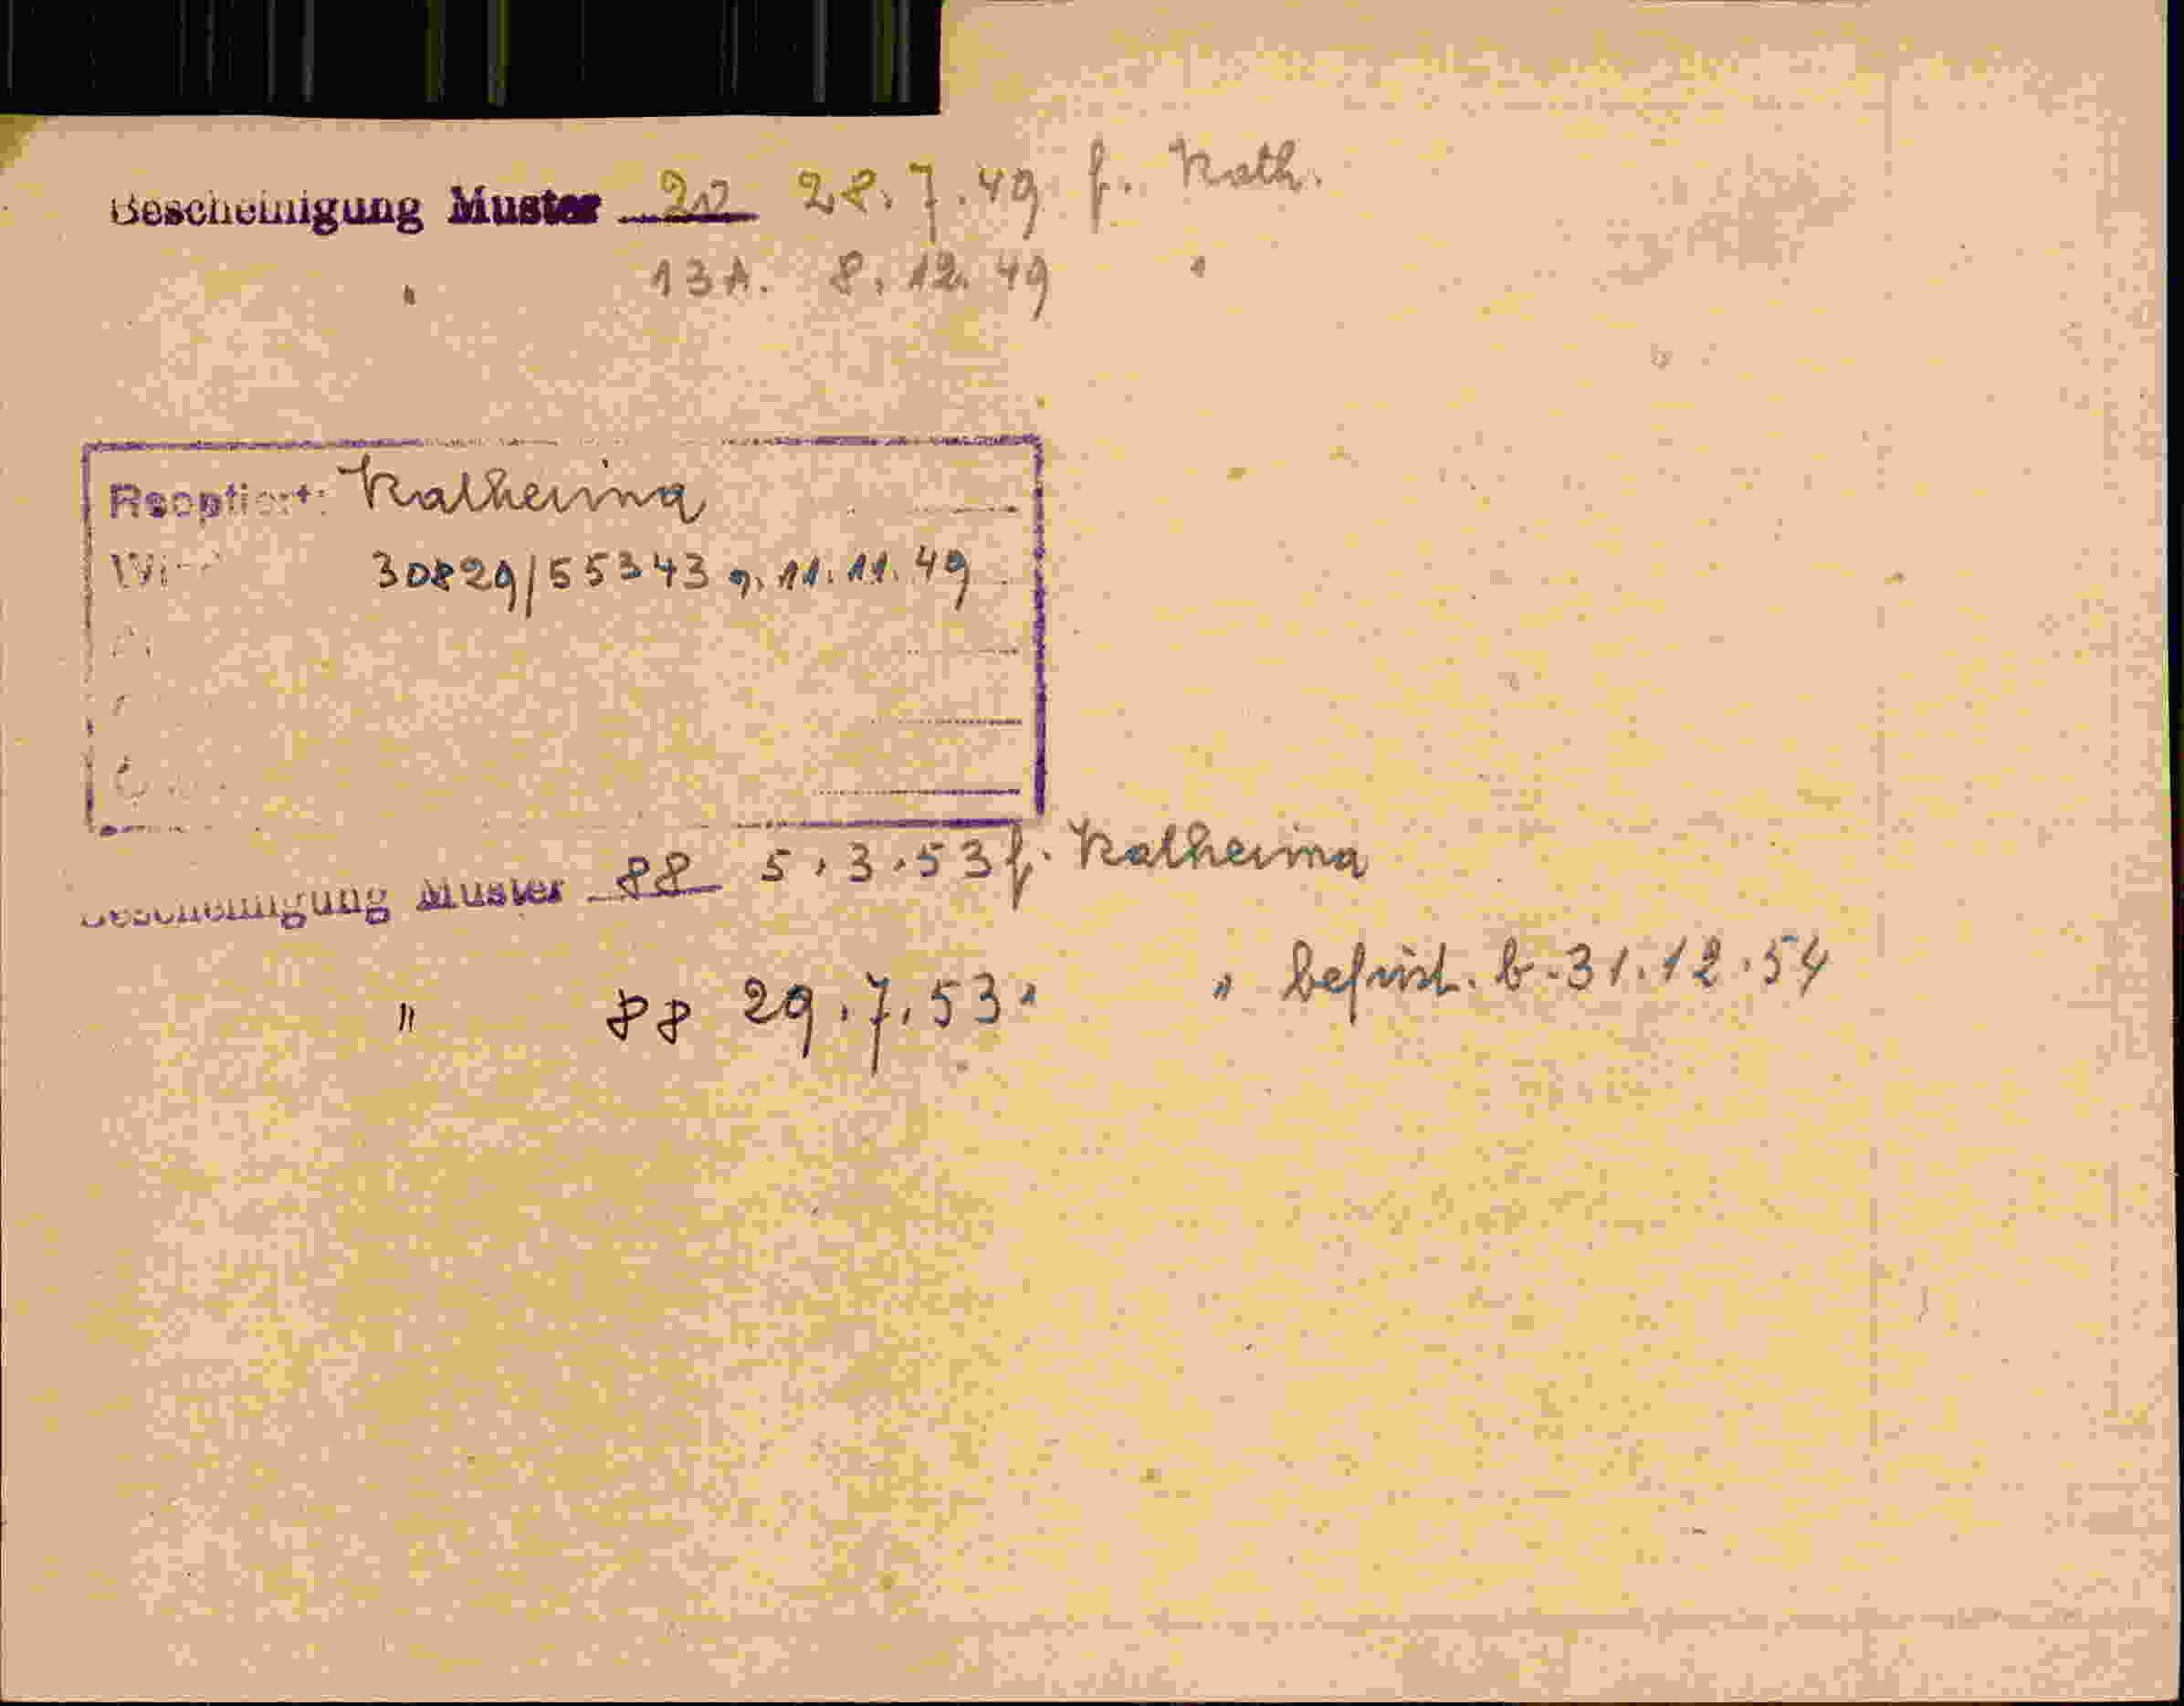 Bescheinigung Muster 20 28.7.49 f. Kath.
" 13A. 8.12.49 "
Reoptiert: Katherina
30829/55343 v. 11.11.49
Bescheinigung Muster 88 5.3.53 f. Katherina
" 88 29.7.53 " " befrist. b. 31.12.54